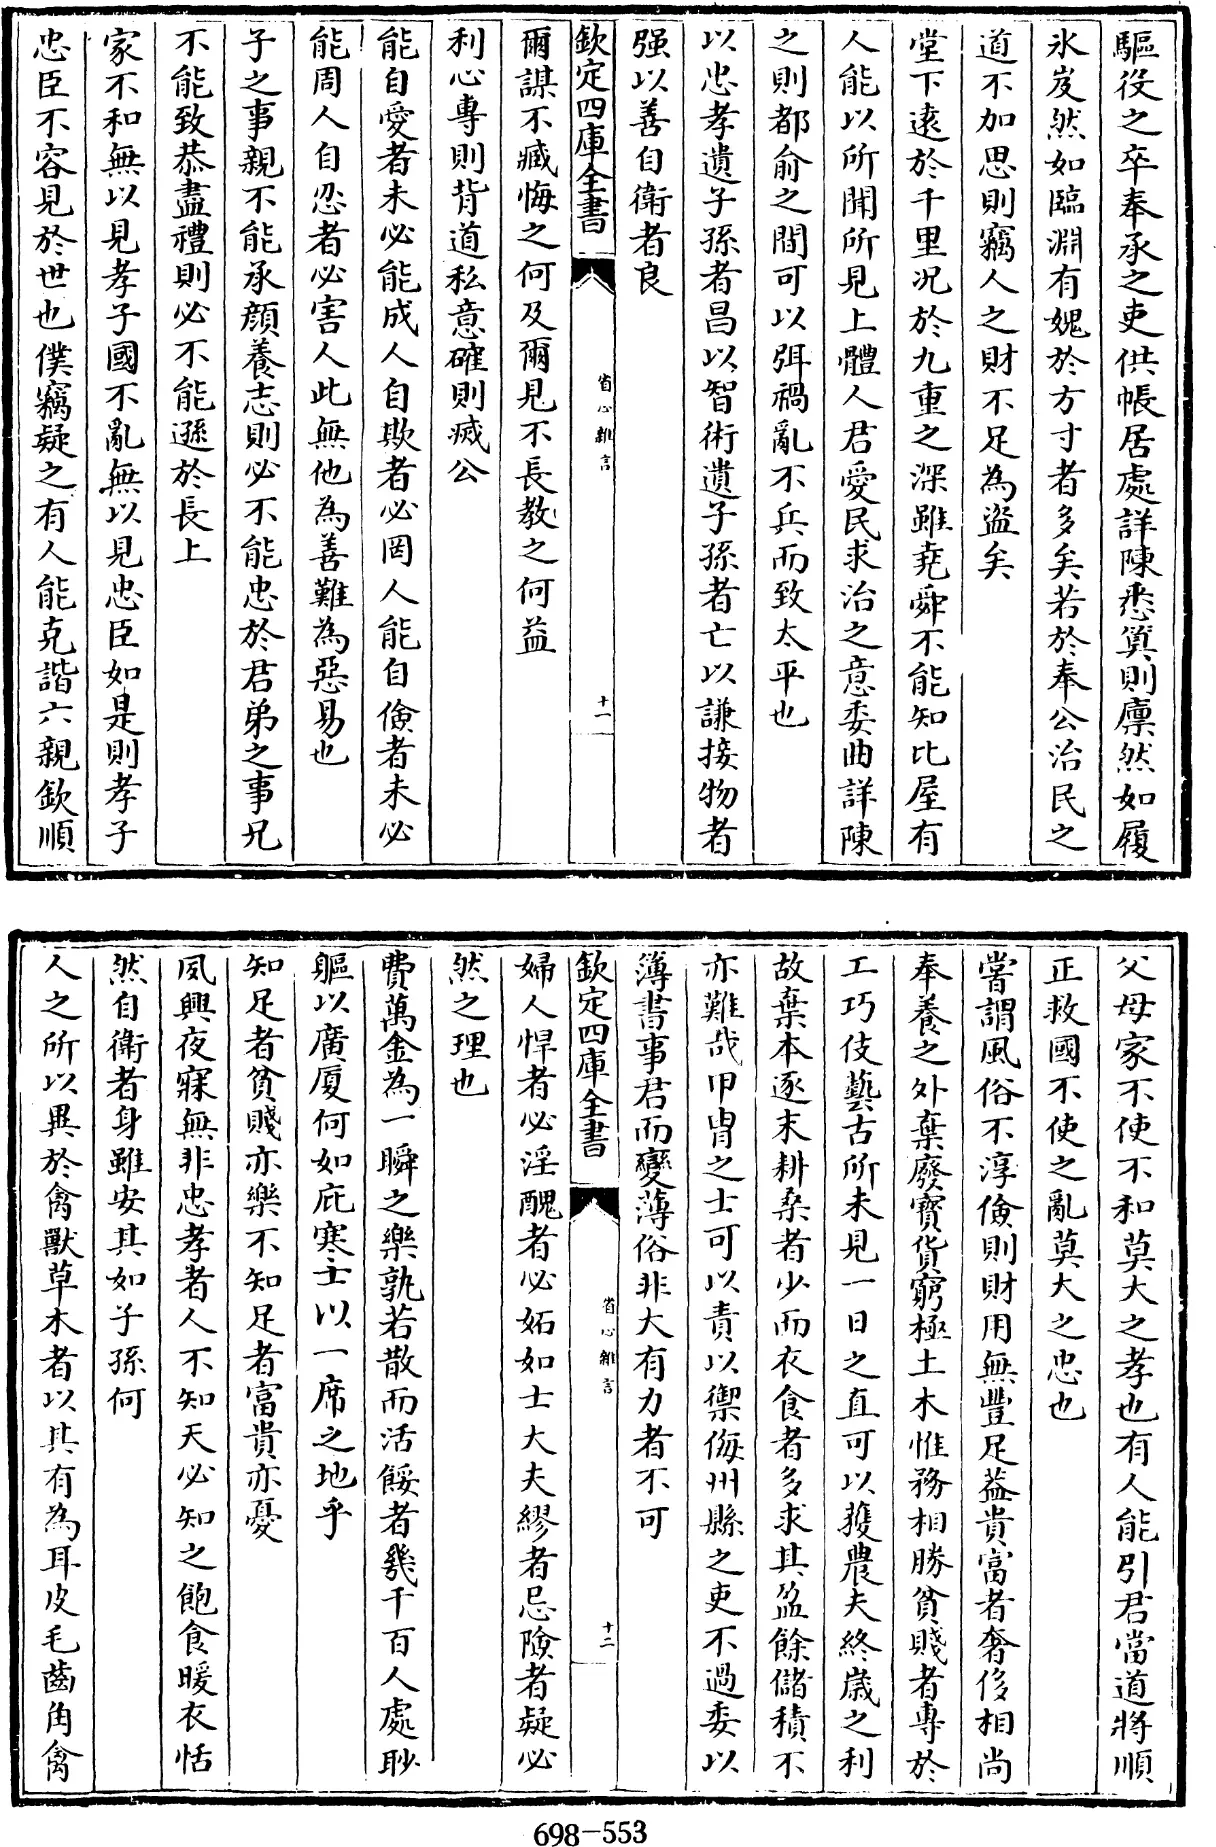 驅役之卒奉承之吏供帳居處詳陳悉算則廪然如履
氷岌然如臨淵有媿於方寸者多矣若於奉公治民之
道不加思則竊人之財不足為盜矣
堂下逺於千里况於九重之深雖堯舜不能知比屋有
人能以所聞所見上體人君愛民求治之意委曲詳陳
之則都俞之間可以弭禍亂不兵而致太平也
以忠孝遺子孫者昌以智術遺子孫者亡以謙接物者
强以善自衛者良
欽定四庫全書
省心雜言
十一
爾謀不臧悔之何及爾見不長教之何益
利心專則背道私意確則滅公
能自愛者未必能成人自欺者必罔人能自儉者未必
能周人自忍者必害人此無他為善難為惡易也
子之事親不能承顔養志則必不能忠於君弟之事兄
不能致恭盡禮則必不能遜於長上
家不和無以見孝子國不亂無以見忠臣如是則孝子
忠臣不容見於世也僕竊疑之有人能克諧六親欽順
父母家不使不和莫大之孝也有人能引君當道將順
正救國不使之亂莫大之忠也
嘗謂風俗不淳儉則財用無豐足葢貴富者奢侈相尚
奉養之外棄廢寳貨窮極土木惟務相勝貧賤者專於
工巧伎藝古所未見一日之直可以獲農夫終嵗之利
故棄本逐末耕桑者少而衣食者多求其盈餘儲積不
亦難哉甲胄之士可以責以禦侮州縣之吏不過委以
簿書事君而變薄俗非大有力者不可
欽定四庫全書
省心雜言
十二
婦人悍者必淫醜者必妬如士大夫繆者忌險者疑必
然之理也
費萬金為一瞬之樂孰若散而活餒者幾千百人處眇
軀以廣厦何如庇寒士以一席之地乎
知足者貧賤亦樂不知足者富貴亦憂
夙興夜寐無非忠孝者人不知天必知之飽食暖衣恬
然自衛者身雖安其如子孫何
人之所以異於禽獸草木者以其有為耳皮毛齒角禽
698-553